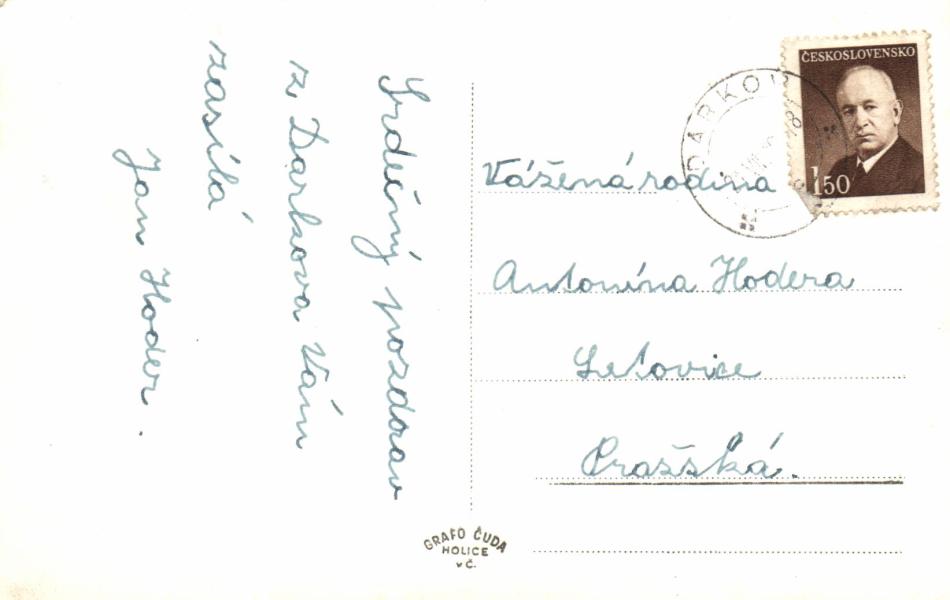 Srdečný pozdrav
z Darkova Vám
zasílá
Jan Hoder.
DARKOV
ČESKOSLOVENSKO
1.50
Vážená rodina
Antonína Hodera
Letovice
Pražská.
GRAFO ČUDA
HOLICE
v Č.